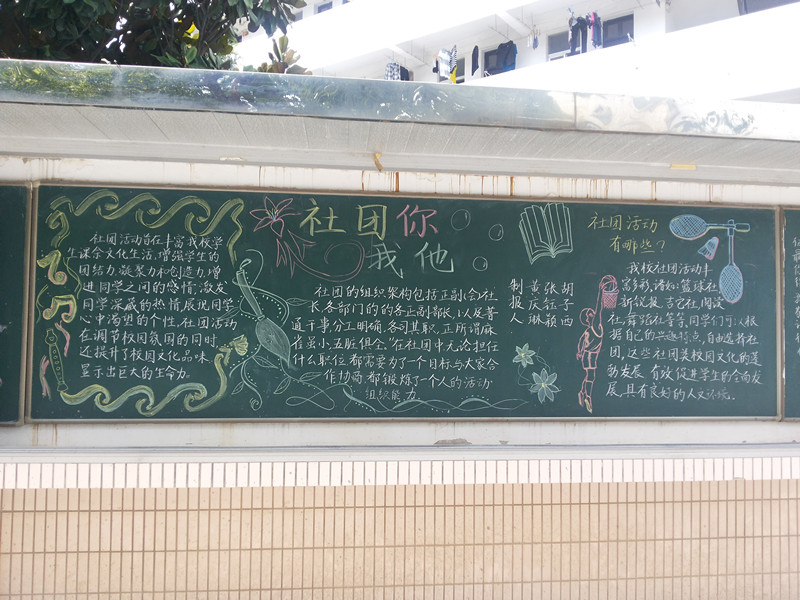 社团活动旨在丰富我校学
生课余文化生活,增强学生的
团结力,凝聚力和创造力,增
进同学之间的感情;激友
同学深藏的热情,展现同学
心中渴望的个性,社团活动
在调节校园氛围的同时
还提升了校园文化品味
显示出巨大的生命力。
社团你
我他
社团的组织架构包括正副(会)社
长、各部门的的各正副部长,以及普
通干事分工明确,各司其职,正所谓麻
雀虽小,五脏俱全,"在社团中无论担任
什么职位,都需要为了一个目标与大家合
作协商,都锻炼了一个人的活动
组织能力。
制报人
黄庆琳
张钰颖
胡子西
社团活动
有哪些?
我校社团活动丰
富多彩,诸如:篮球社
新锐报、吉它社,阅读
社,舞蹈社等等,同学们可以根
据自己的兴趣特点,自由选择社
团,这些社团美校园文化的蓬
勃发展,有效促进学生的全面发
展,具有良好的人文环境。